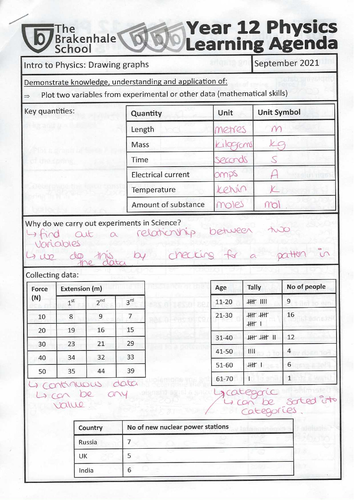 The Brakenhale School
Year 12 Physics
Learning Agenda
Intro to Physics: Drawing graphs September 2021
Demonstrate knowledge, understanding and application of:
⇒ Plot two variables from experimental or other data (mathematical skills)
Key quantities:
Quantity Unit Unit Symbol
Length metres m
Mass kilograms kg
Time seconds s
Electrical current amps A
Temperature kelvin K
Amount of substance moles mol
Why do we carry out experiments in Science?
↳ find out a relationship between two
variables
↳ we do this by checking for a patten in
the data
Collecting data:
Force (N) Extension (m)
1st 2nd 3rd
10 8 9 7
20 19 16 15
30 23 21 29
40 34 32 33
50 35 44 39
↳ continuous data
↳ can be any
value
Age Tally No of people
11-20 9
21-30 16
31-40 12
41-50 4
51-60 6
61-70 1
↳ categoric
↳ can be sorted into
categories.
Country No of new nuclear power stations
Russia 7
UK 5
India 6